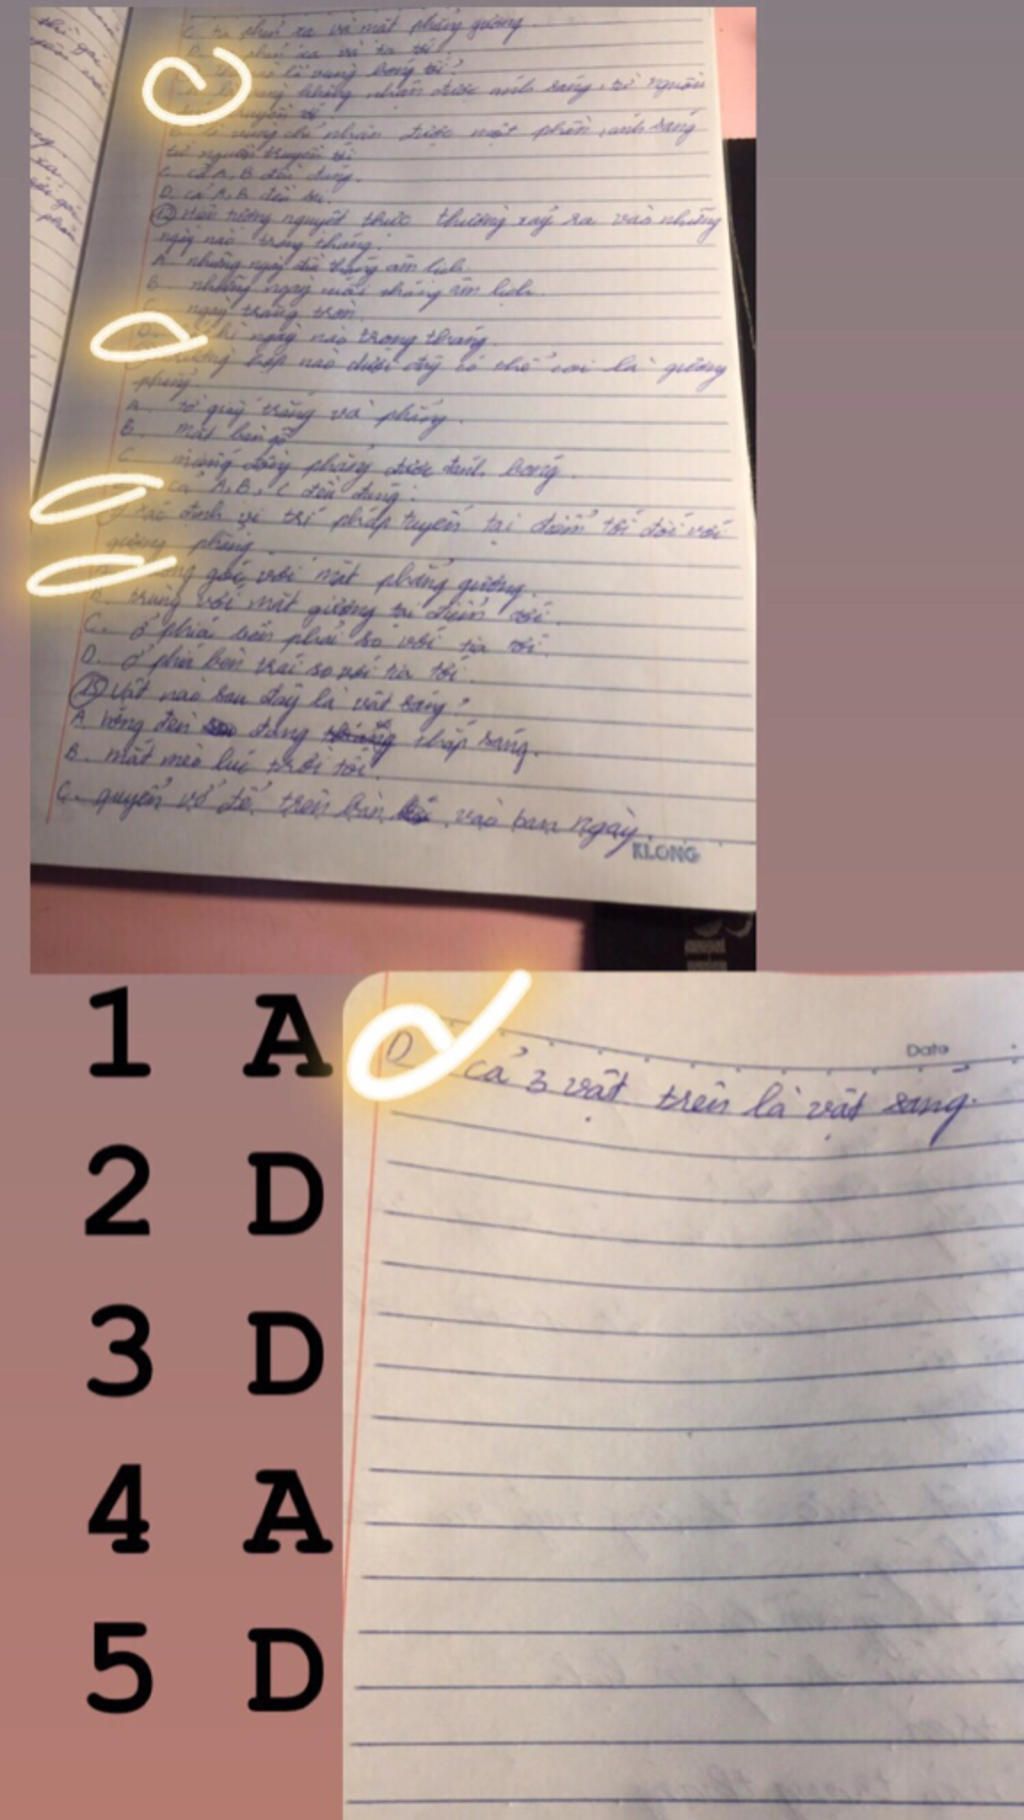 C. tia phản xạ và mặt phẳng gương
phản xạ và tia tới.
là vùng bóng tối?
không nhận được ánh sáng từ nguồn
truyền tới
B. là vùng chỉ nhận được một phần ánh sáng
từ nguồn truyền tới
C. cả A, B đều đúng.
D. cả A, B đều sai.
12 Hiện tượng nguyệt thực thường xảy ra vào những
ngày nào trong tháng.
A. những ngày đầu tháng âm lịch.
B. những ngày cuối tháng âm lịch.
C. ngày trăng tròn.
D. kì ngày nào trong tháng.
trường hợp nào dưới đây có thể coi là gương
phẳng.
A. tờ giấy trắng và phẳng.
B. mặt bàn gỗ
C. miếng đồng phẳng được đánh bóng.
cả A, B, C đều đúng.
xác định vị trí pháp tuyến tại điểm tới đối với
gương phẳng.
góc với mặt phẳng gương.
B. trùng với mặt gương tại điểm tới.
C. ở phía bên phải so với tia tới.
D. ở phía bên trái so với tia tới.
15 Vật nào sau đây là vật sáng?
A. bóng đèn đang thắp sáng.
B. mắt mèo lúc trời tối.
C. quyển vở để trên bàn vào ban ngày.
KLONG
1 A
2 D
3 D
4 A
5 D
Date
D cả 3 vật trên là vật sáng.